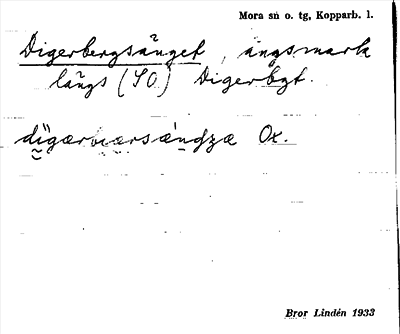 Mora sn o. tg, Kopparb. l.
Digerbergsänget, ängsmark
längs (SO) Digerbgt.
digærbærsændzæ Ox.
Bror Lindén 1933